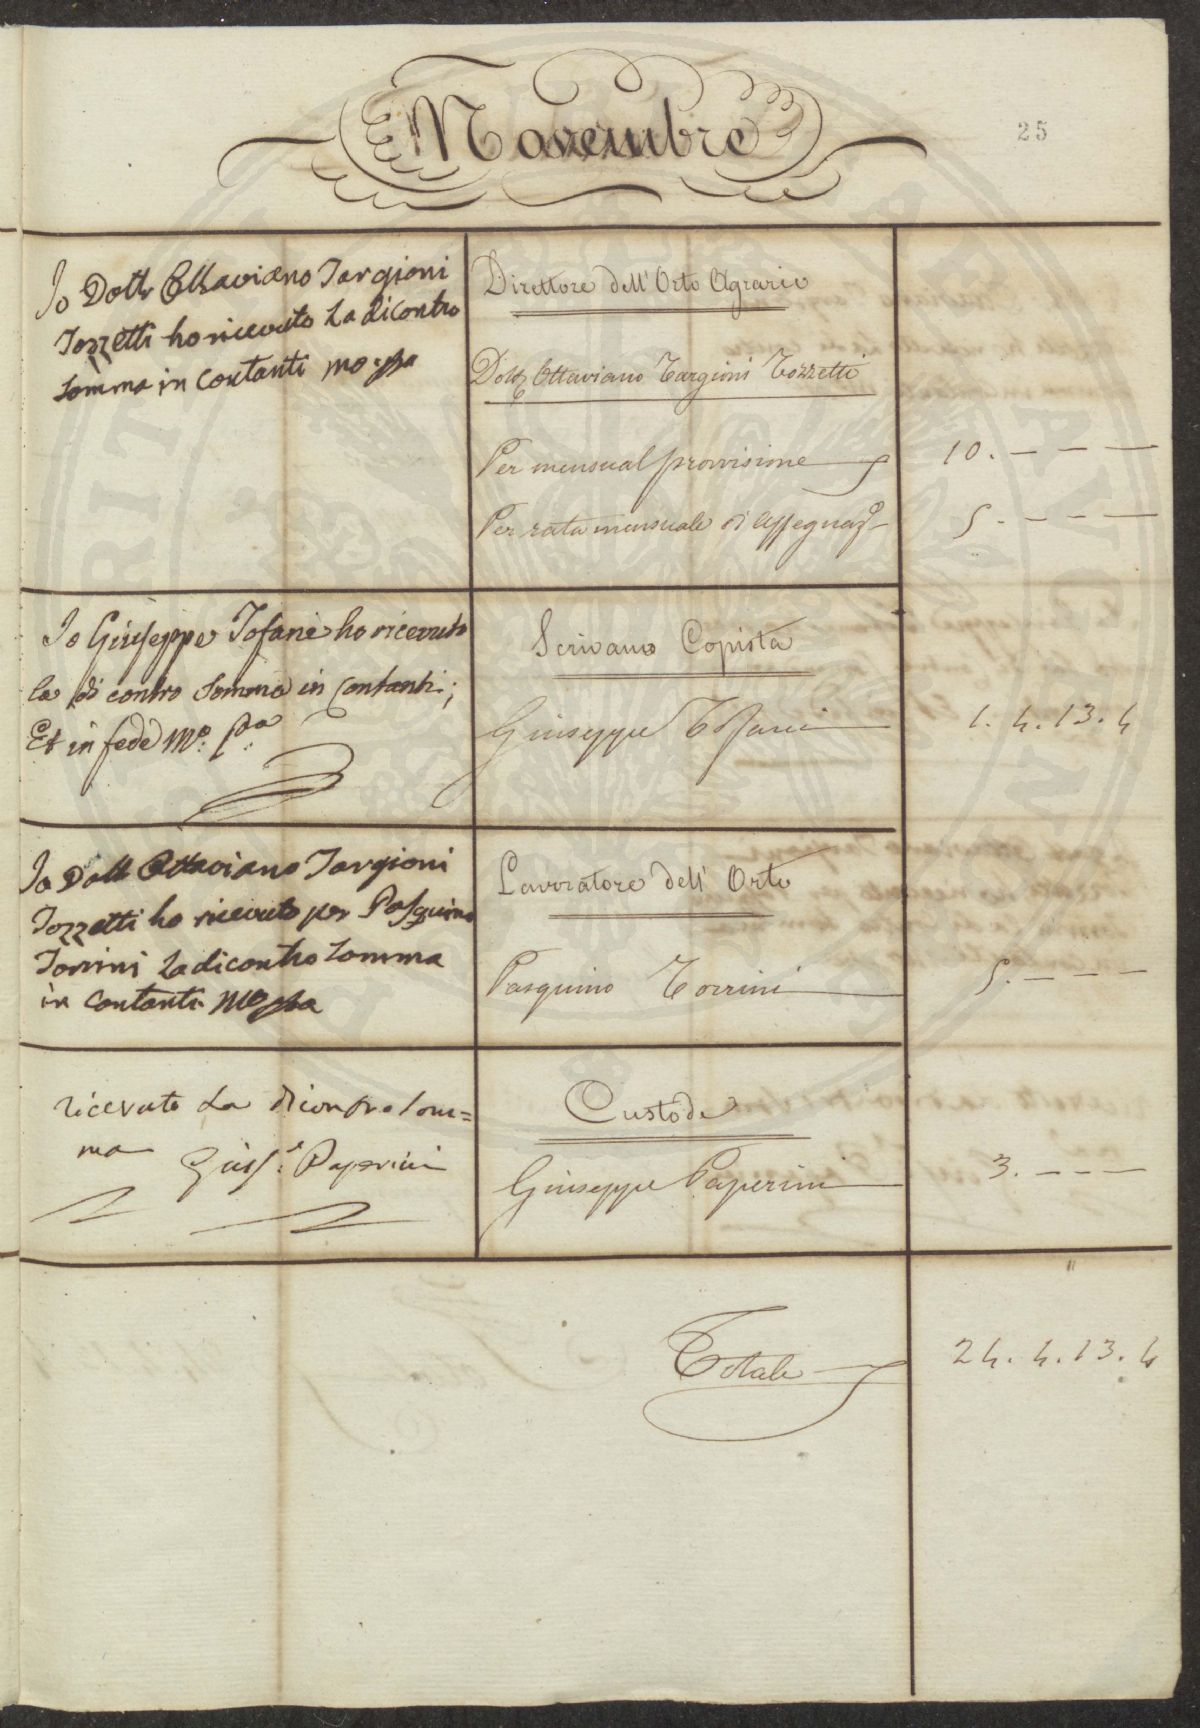 Novembre
25
Io Dottr Ottaviano Targioni
Tozzetti ho ricevuto La dicontro
Somma in Contanti mo: ppa
Direttore dell' Orto Agrario
Dottr Ottaviano Targioni Tozzetti
Per mensual provvisione
10. — — —
Per rata mensuale di Assegnaz.e
5. — — —
Io Giuseppe Tofani ho ricevuto
la di contro Somma in Contanti;
Et in fede Mo: ppa
Scrivano Copista
Giuseppe Tofani
1. 4. 13. 4
Io Dottr Ottaviano Targioni
Tozzetti ho ricevuto per Pasquino
Torrini La dicontro Somma
in Contanti Mo ppa
Lavoratore dell' Orto
Pasquino Torrini
5. — — —
ricevuto La dicontro som=
ma Giuse. Paperini
Custode
Giuseppe Paperini
3. — — —
Totale
24. 4. 13. 4